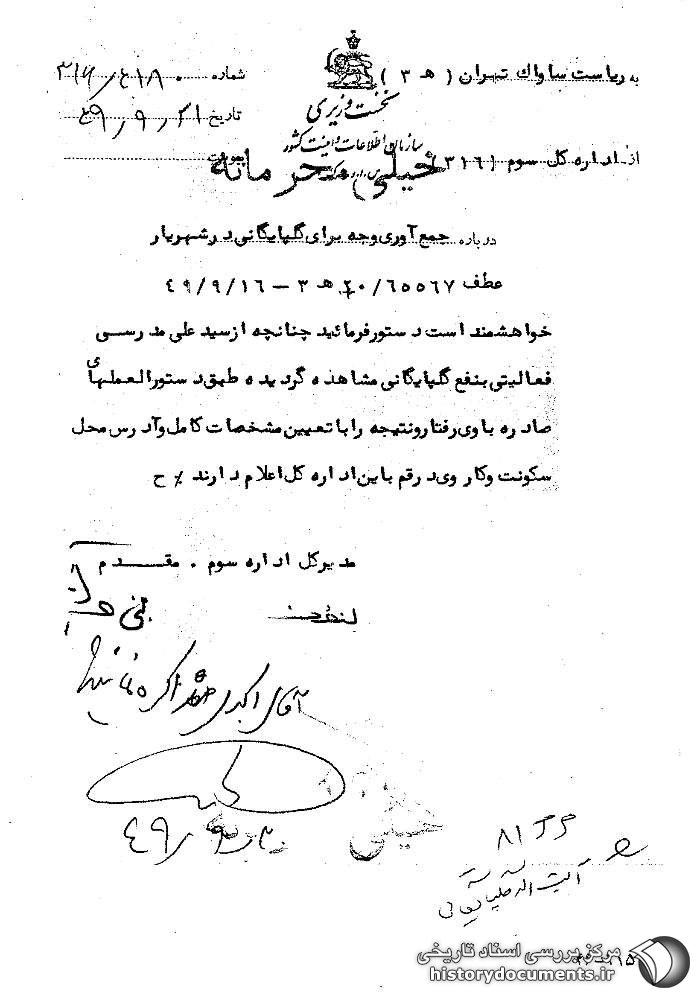 به ریاست ساواک تهران ( هـ ۳ )
شماره ۳۱۶/۴۱۸۰
نخست وزیری
تاریخ ۴۹/۹/۲۱
سازمان اطلاعات و امنیت کشور
از اداره کل سوم (۳۱۶)
پیوست
خیلی محرمانه
درباره جمع آوری وجه برای گلپایگانی در شهریار
عطف ۲۰/۶۵۵۶۷ هـ ۳ – ۴۹/۹/۱۶
خواهشمند است دستور فرمائید چنانچه از سید علی مدرسی
فعالیتی بنفع گلپایگانی مشاهده گردیده طبق دستورالعملهای
صادره باوی رفتار و نتیجه را با تعیین مشخصات کامل و آدرس محل
سکونت و کار وی در قم باین اداره کل اعلام دارند ٪ ح
مدیر کل اداره سوم . مقدم
آقای اکبری مذاکره نمائید
۴۹/۹/
خیلی محرمانه
آیت اله گلپایگانی
مرکز بررسی اسناد تاریخی
historydocuments.ir